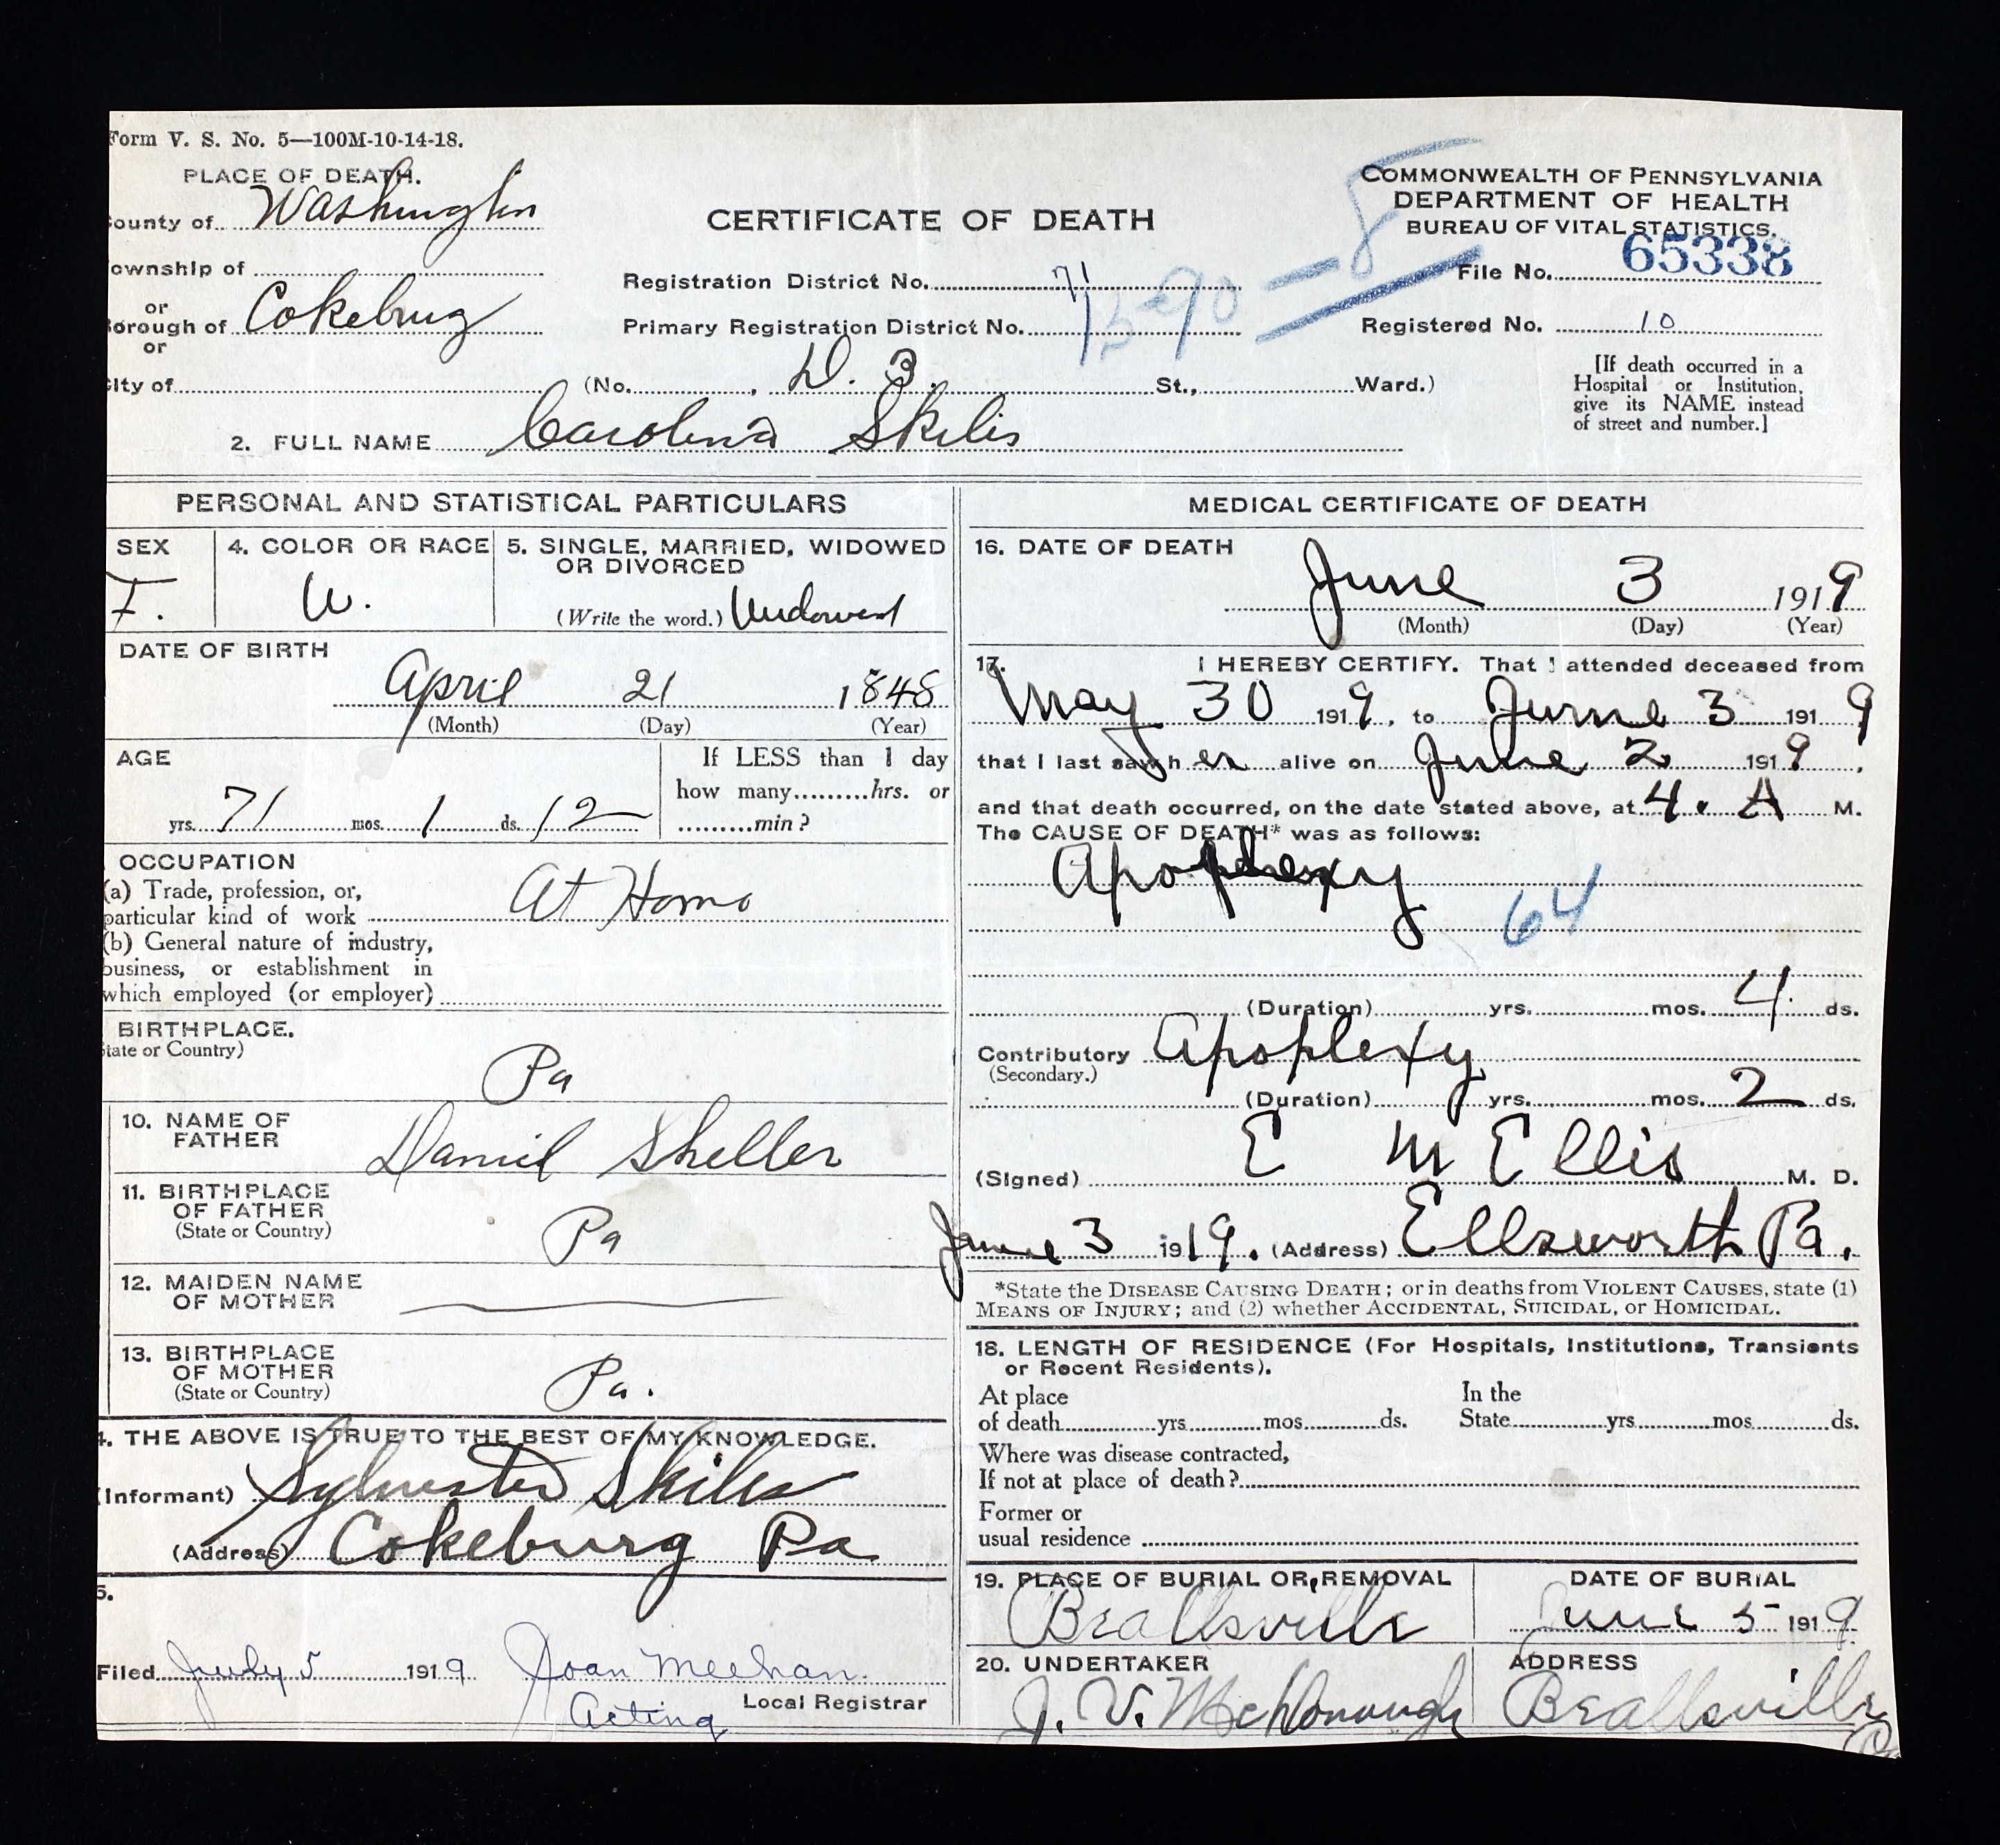 Form V. S. No. 5—100M-10-14-18.
PLACE OF DEATH.
County of Washington
Township of
or
Borough of Cokeburg
or
City of
CERTIFICATE OF DEATH
COMMONWEALTH OF PENNSYLVANIA
DEPARTMENT OF HEALTH
BUREAU OF VITAL STATISTICS.
Registration District No. 71
File No. 65338
Primary Registration District No.
Registered No. 10
(No. , D. 3. St., Ward.)
[If death occurred in a
Hospital or Institution,
give its NAME instead
of street and number.]
2. FULL NAME Carolina Skiles
PERSONAL AND STATISTICAL PARTICULARS
SEX
F.
4. COLOR OR RACE
W.
5. SINGLE, MARRIED, WIDOWED
OR DIVORCED
(Write the word.) Widowed
DATE OF BIRTH
April 21 1848
(Month) (Day) (Year)
AGE
yrs. 71 mos. 1 ds. 12
If LESS than 1 day
how many hrs. or
min?
OCCUPATION
(a) Trade, profession, or,
particular kind of work At Home
(b) General nature of industry,
business, or establishment in
which employed (or employer)
BIRTHPLACE.
State or Country)
Pa
10. NAME OF
FATHER Daniel Sheller
11. BIRTHPLACE
OF FATHER
(State or Country) Pa
12. MAIDEN NAME
OF MOTHER
13. BIRTHPLACE
OF MOTHER
(State or Country) Pa.
4. THE ABOVE IS TRUE TO THE BEST OF MY KNOWLEDGE.
(Informant) Sylvester Skiles
(Address) Cokeburg Pa
5.
Filed July 5 1919 Joan Meehan.
Acting Local Registrar
MEDICAL CERTIFICATE OF DEATH
16. DATE OF DEATH
June 3 1919
(Month) (Day) (Year)
17. I HEREBY CERTIFY. That I attended deceased from
May 30 1919, to June 3 1919
that I last saw her alive on June 2 1919,
and that death occurred, on the date stated above, at 4. A M.
The CAUSE OF DEATH* was as follows:
Apoplexy
64
(Duration) yrs. mos. 4 ds.
Contributory Apoplexy
(Secondary.)
(Duration) yrs. mos. 2 ds.
(Signed) E M Ellis M. D.
June 3 1919. (Address) Ellsworth Pa.
*State the DISEASE CAUSING DEATH; or in deaths from VIOLENT CAUSES, state (1)
MEANS OF INJURY; and (2) whether ACCIDENTAL, SUICIDAL, or HOMICIDAL.
18. LENGTH OF RESIDENCE (For Hospitals, Institutions, Transients
or Recent Residents).
At place
of death yrs mos ds.
In the
State yrs mos ds.
Where was disease contracted,
If not at place of death?
Former or
usual residence
19. PLACE OF BURIAL OR REMOVAL
Beallsville
DATE OF BURIAL
June 5 1919
20. UNDERTAKER
J. V. McDonough
ADDRESS
Beallsville
Pa